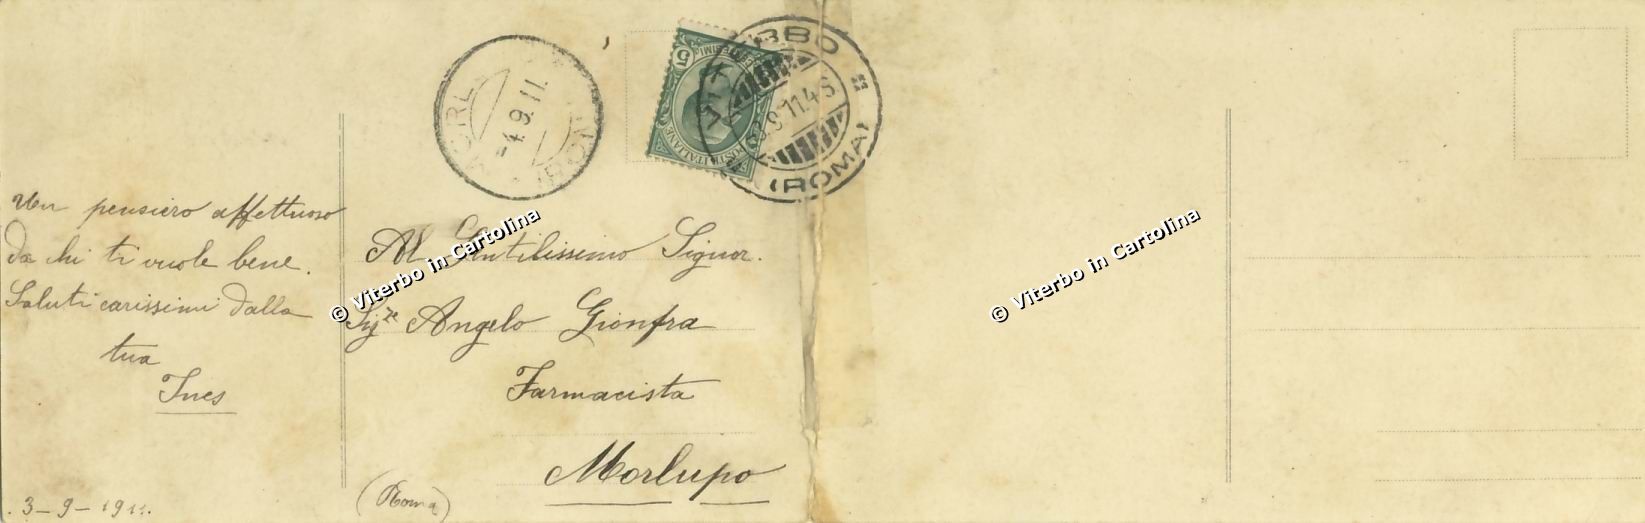 Un pensiero affettuoso
da chi ti vuole bene.
Saluti carissimi dalla
tua
Ines
3-9-1911.
Al Gentilissimo Signor.
Sig.re Angelo Gionfra
Farmacista
Morlupo
(Roma)
-4.9.11.
5
CENTESIMI
POSTE ITALIANE
3.9.11.4S
(ROMA)
© Viterbo in Cartolina
© Viterbo in Cartolina